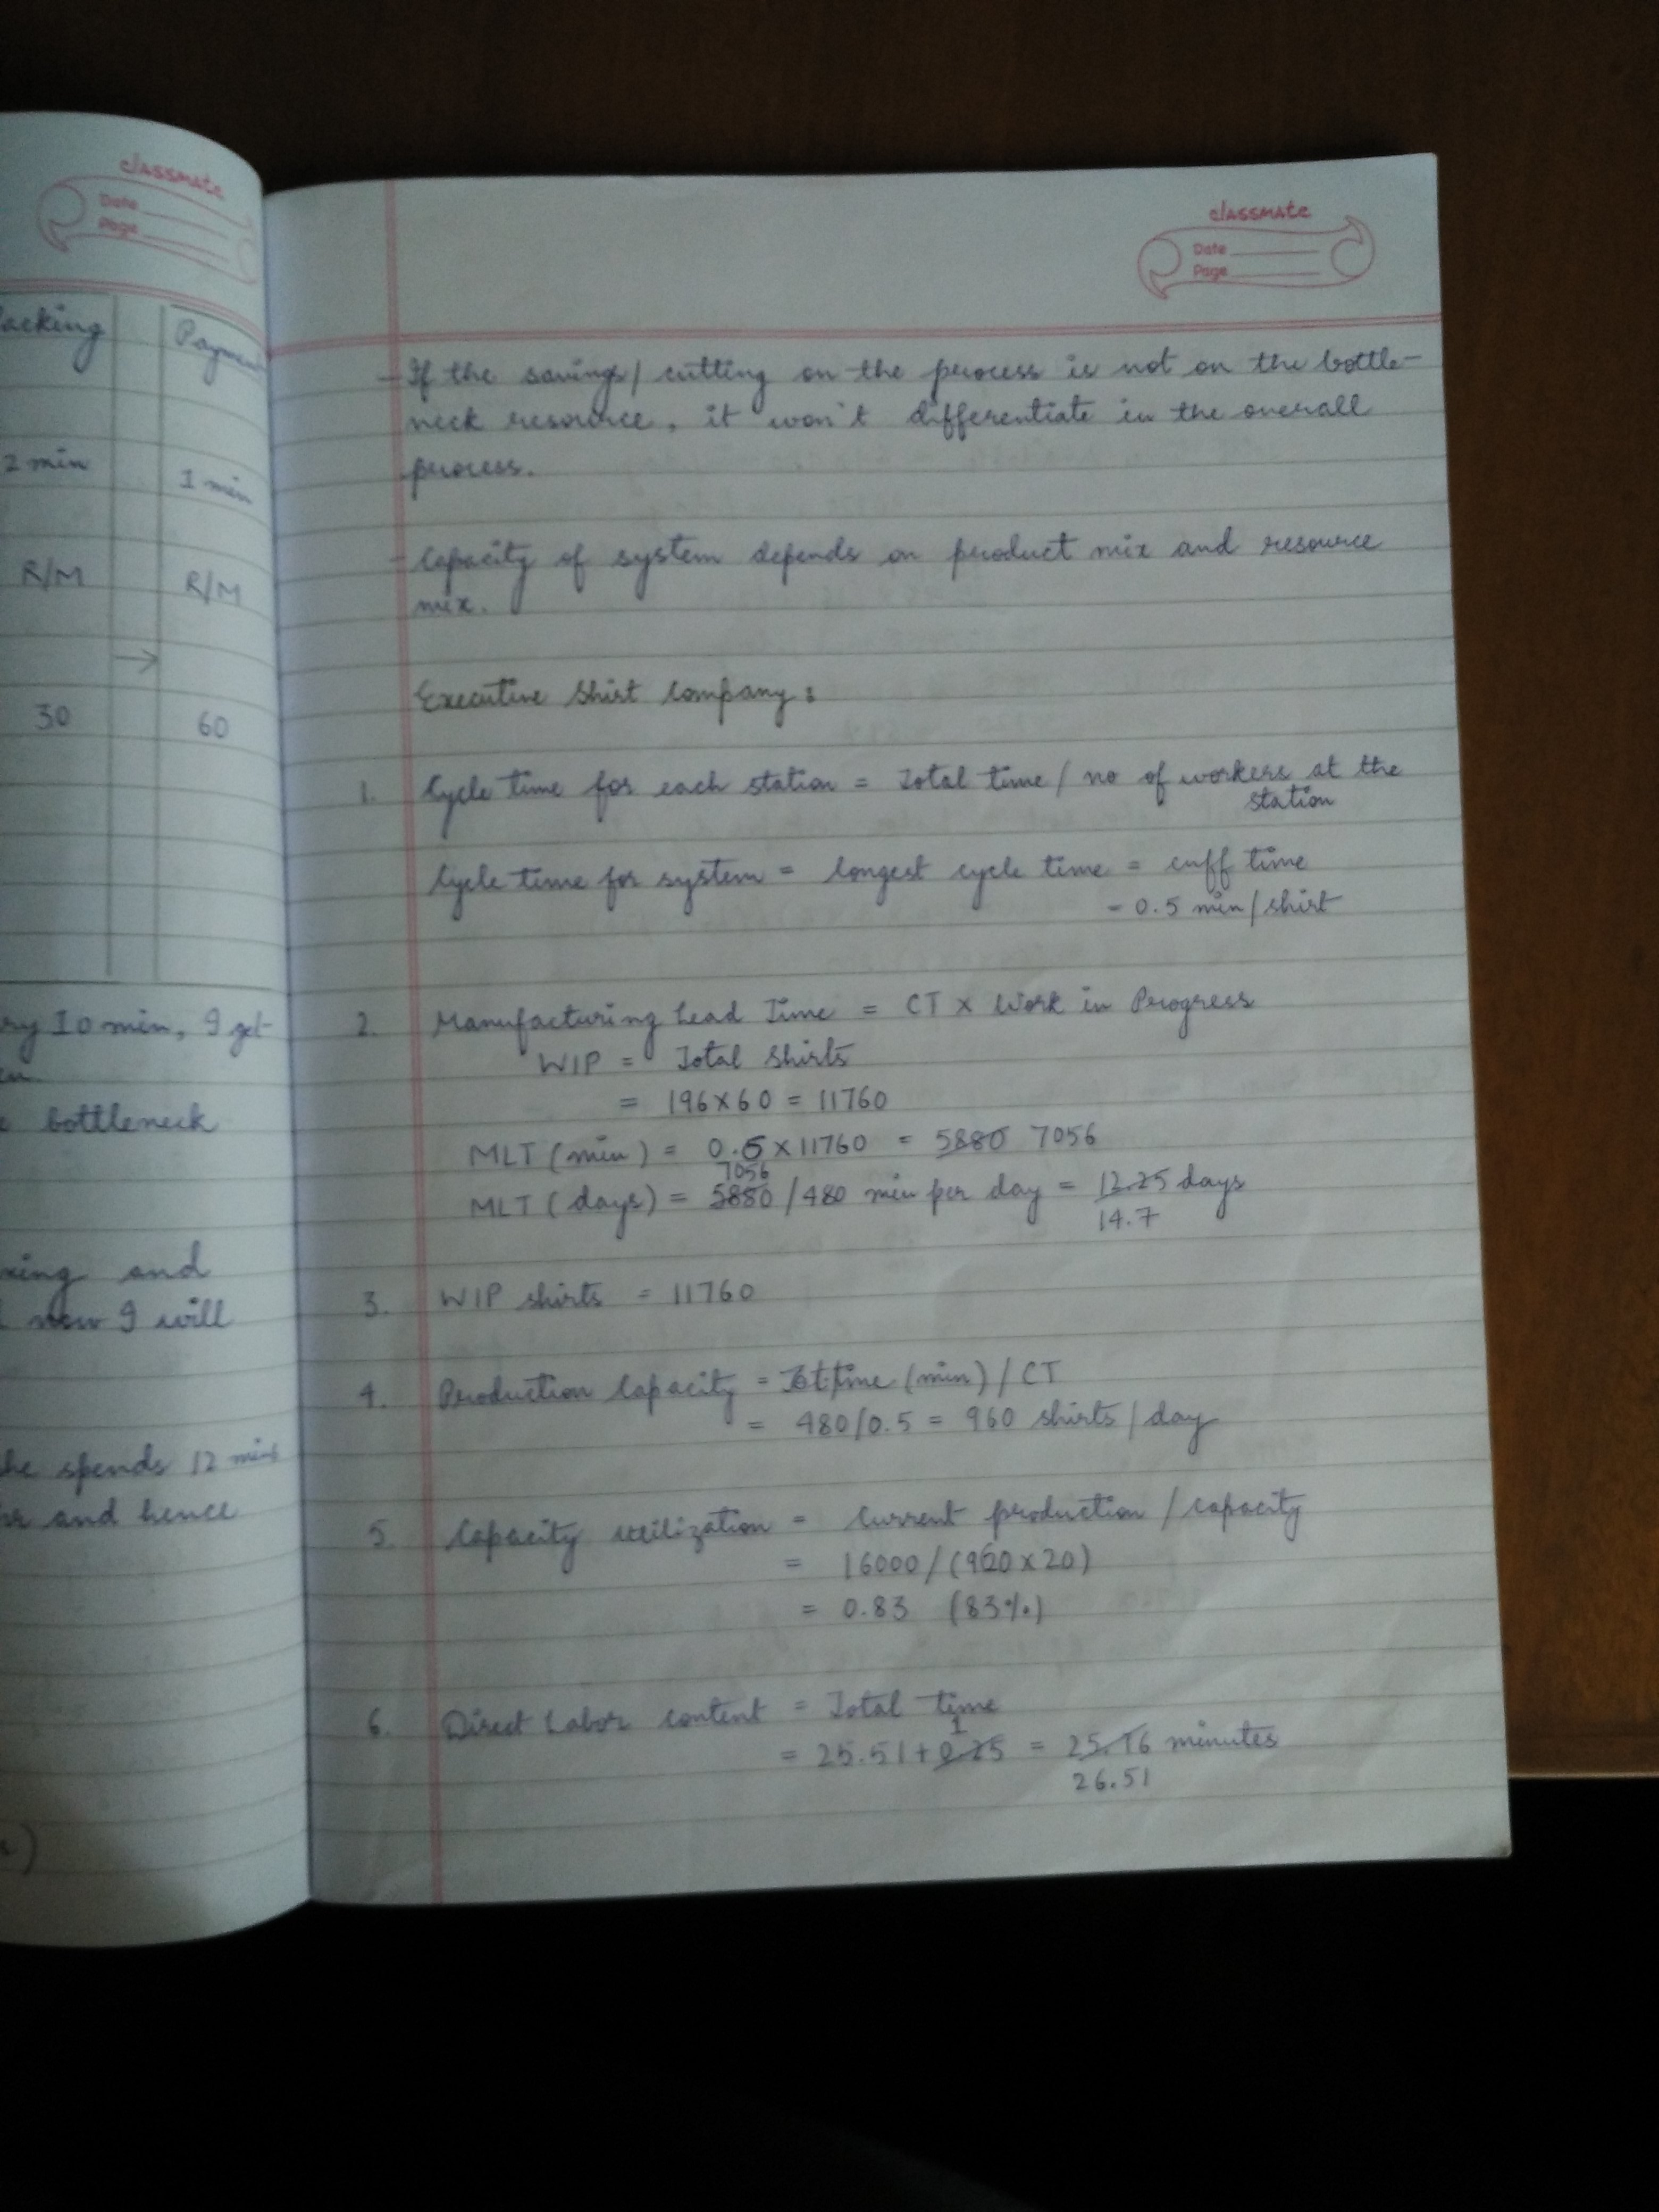 classmate
Date
Page
acking
Payment
2 min
1 min
R/M
R/M
→
30
60
ry 10 min, I get
e bottleneck
xing and
new I will
he spends 12 mins
and hence
classmate
Date
Page
- If the savings/ cutting on the process is not on the bottle-
neck resource, it won't differentiate in the overall
process.
- Capacity of system depends on product mix and resource
mix.
Executive Shirt Company :
1. Cycle time for each station = Total time / no of workers at the
station
Cycle time for system = longest cycle time = cuff time
= 0.5 min/shirt
2. Manufacturing Lead Time = CT x Work in Progress
WIP = Total Shirts
= 196x60 = 11760
MLT (min) = 0.6x11760 = 5880 7056
7056
MLT (days) = 5880 /480 min per day = 12.25 days
14.7
3. WIP shirts = 11760
4. Production Capacity = Tot time (min) / CT
= 480/0.5 = 960 shirts/day
5. Capacity utilization = Current production / capacity
= 16000/(960x20)
= 0.83 (83%)
6. Direct Labor content = Total time
1
= 25.51+0.25 = 25.76 minutes
26.51